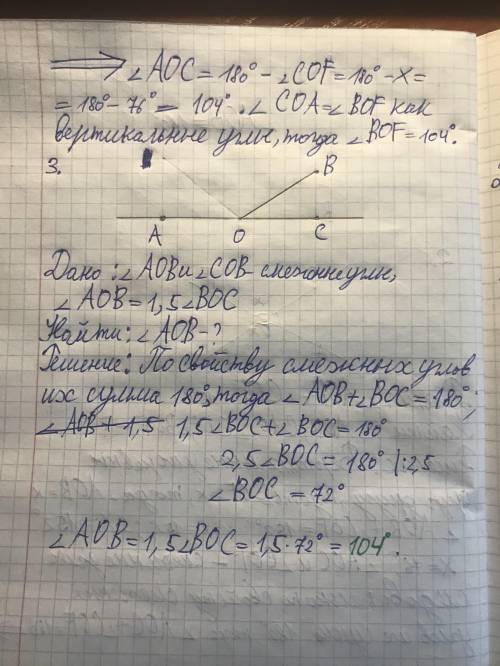 ⟹ ∠AOC = 180° - ∠COF = 180° - X =
= 180° - 76° = 104°. ∠COA = ∠BOF как
вертикальные углы, тогда ∠BOF = 104°.
3.
B
A O C
Дано: ∠AOB и ∠COB - смежные углы,
∠AOB = 1,5∠BOC
Найти: ∠AOB - ?
Решение: По свойству смежных углов
их сумма 180°, тогда ∠AOB + ∠BOC = 180°;
∠AOB + 1,5 1,5∠BOC + ∠BOC = 180°
2,5∠BOC = 180° |:2,5
∠BOC = 72°
∠AOB = 1,5∠BOC = 1,5·72° = 104°.